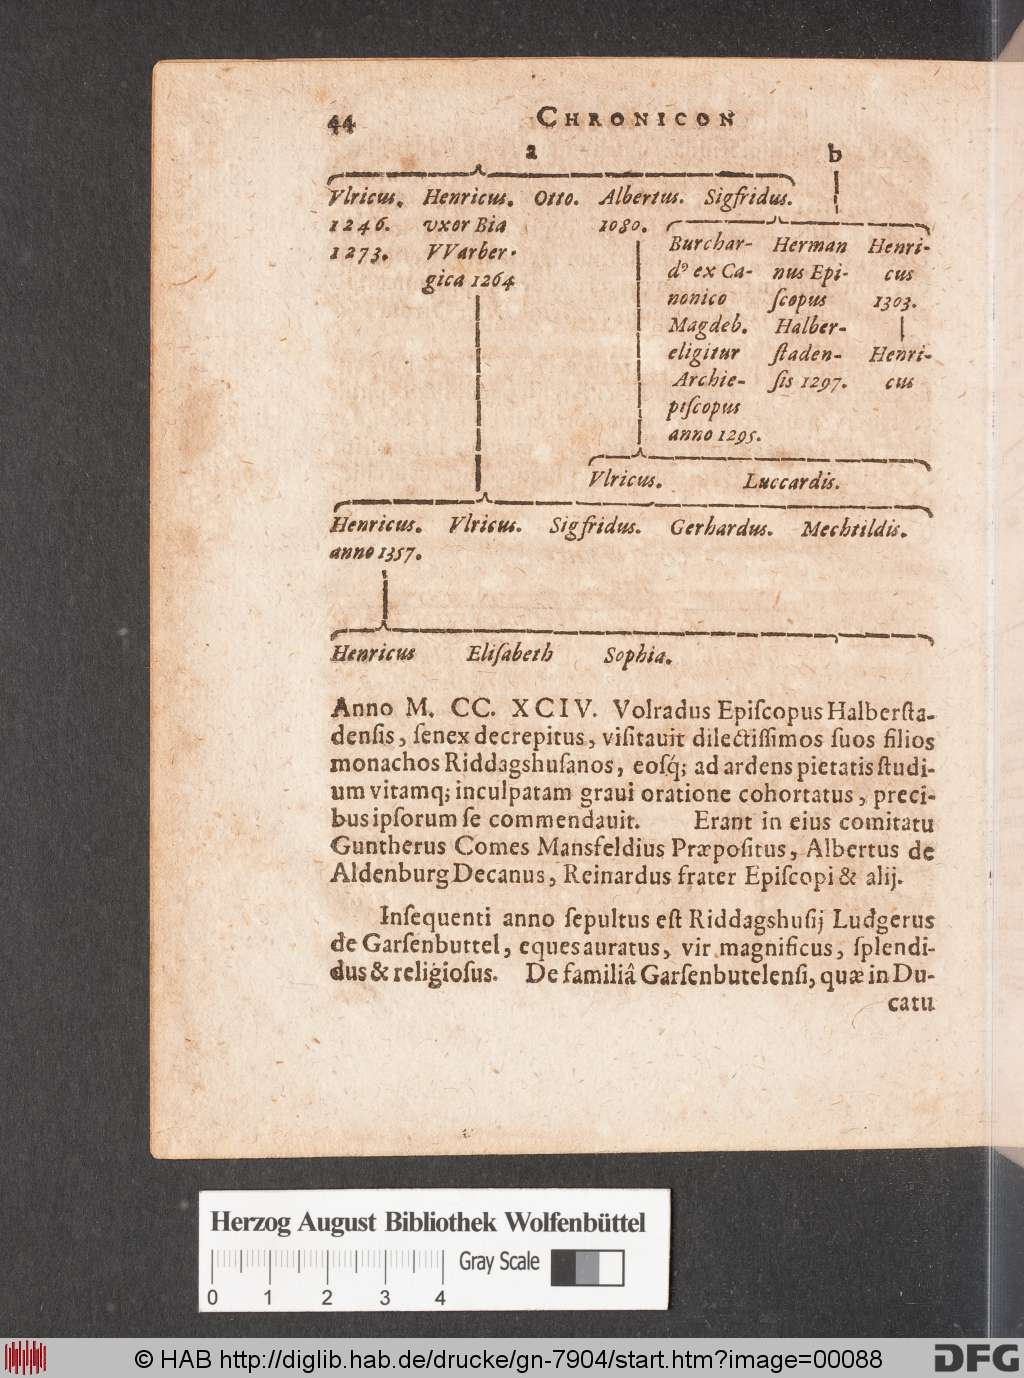 44 CHRONICON
a b
Vlricus. Henricus. Otto. Albertus. Sigfridus.
1246. vxor Bia 1080.
1273. VVarber-
gica 1264
Burchar- Herman Henri-
dꝰ ex Ca- nus Epi- cus
nonico ſcopus 1303.
Magdeb. Halber-
eligitur ſtaden- Henri-
Archie- ſis 1297. cus
piſcopus
anno 1295.
Vlricus. Luccardis.
Henricus. Vlricus. Sigfridus. Gerhardus. Mechtildis.
anno 1357.
Henricus Eliſabeth Sophia.
Anno M. CC. XCIV. Volradus Epiſcopus Halberſta-
denſis, ſenex decrepitus, viſitauit dilectiſſimos ſuos filios
monachos Riddagshuſanos, eoſq́; ad ardens pietatis ſtudi-
um vitamq; inculpatam graui oratione cohortatus, preci-
bus ipſorum ſe commendauit. Erant in eius comitatu
Guntherus Comes Mansfeldius Præpoſitus, Albertus de
Aldenburg Decanus, Reinardus frater Epiſcopi & alij.
Inſequenti anno ſepultus eſt Riddagshuſij Ludgerus
de Garſenbuttel, eques auratus, vir magnificus, ſplendi-
dus & religioſus. De familiâ Garſenbutelenſi, quæ in Du-
catu
Herzog August Bibliothek Wolfenbüttel
Gray Scale
0 1 2 3 4
© HAB http://diglib.hab.de/drucke/gn-7904/start.htm?image=00088
DFG